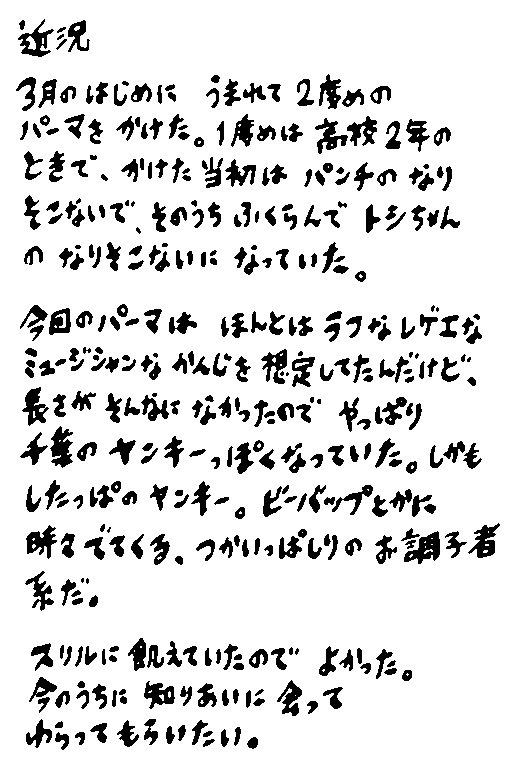 近況
3月のはじめに うまれて2度めの
パーマをかけた。1度めは高校2年の
ときで、かけた当初は パンチの なり
そこないで、そのうち ふくらんで トシちゃん
の なりそこないに なっていた。
今回のパーマは ほんとは ラフな レゲエな
ミュージシャンな かんじを 想定してたんだけど、
長さが そんなに なかったので やっぱり
千葉の ヤンキーっぽくなっていた。しかも
したっぱの ヤンキー。ビーバップとかに
時々 でてくる、つかいっぱしりの お調子者
系だ。
スリルに 飢えていたので よかった。
今のうちに 知りあいに 会って
わらって もらいたい。